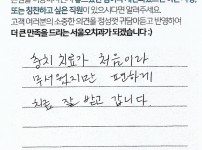 또는 칭찬하고 싶은 직원이 있으시다면 말려주세요.
고객 여러분의 소중한 의견을 정성껏 귀담아듣고 반영하여
더 큰 만족을 드리는 서울오치과가 되겠습니다 :)
충치 치료가 처음이라
무서웠지만 편하게
치료 잘 받고 갑니다